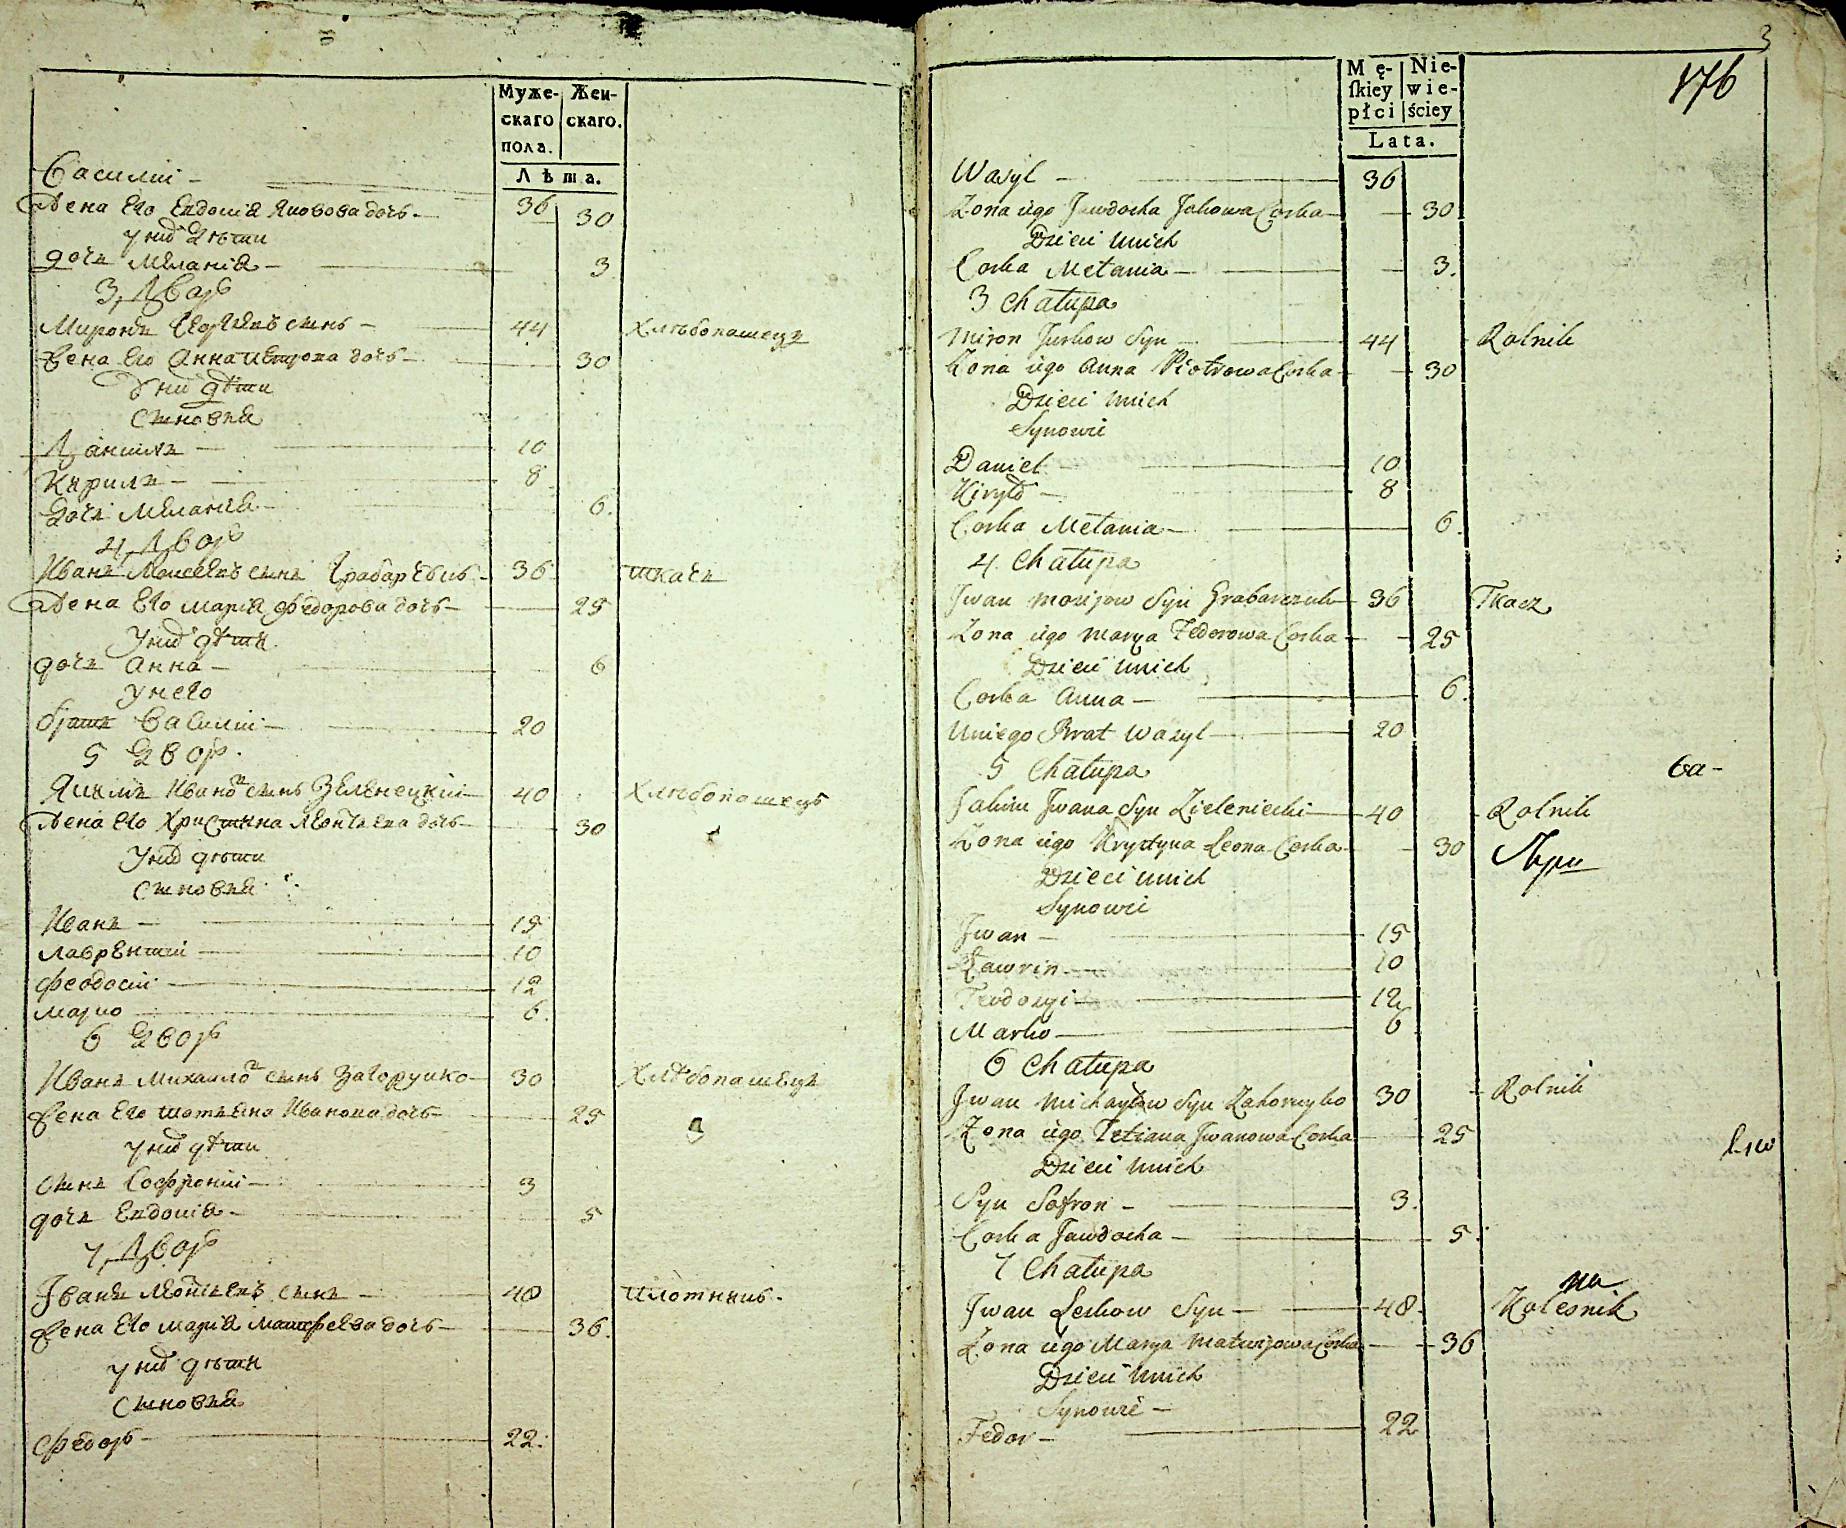 Муже-
скаго
пола.
Жен-
скаго.
Лѣта.
Василий - 36
Жена Его Евдокия Яковова дочь - 30
у них дѣти
дочь Мелания - 3
3 Дворъ
Миронъ Юрковъ сынъ - 44 Хлѣбопашецъ
Жена Его Анна Петрова дочь - 30
У них дѣти
сыновья
Данилъ - 10
Кирилъ - 8
дочь Мелания - 6.
4 Дворъ
Иванъ Моисеевъ сынъ Грабарчукъ - 36 ткачъ
Жена Его Мария Федорова дочь - 25
У них дѣти
дочь Анна - 6
у него
братъ Василий - 20
5 Дворъ.
Якимъ Иванов сынъ Зеленецкий - 40 Хлѣбопашецъ
Жена Его Христина Леонтьева дочь - 30
У них дѣти
сыновья
Иванъ - 15
Лаврентий - 10
Феодосий - 12
Марко 6.
6 Дворъ
Иванъ Михайлов сынъ Загоруйко - 30 Хлѣбопашецъ
Жена Его Татьяна Иванова дочь 25
у них дѣти
сынъ Софроний - 3
дочь Евдокия - 5
7 Дворъ
Иванъ Леонтьевъ сынъ - 48 плотникъ.
Жена Его Мария Матфеева дочь - 36.
у них дѣти
сыновья
Федоръ - 22.
3
176
Mę-
ſkiey
płci
Nie-
wie-
ściey
Lata.
Wasyl - 36
Zona iego Jewdocha Jakowa Corka - 30
Dzieci unich
Corka Mełania - 3.
3 Chałupa
Miron Jurkow Syn - 44 - Rolnik
Zona iego Anna Piotrowa Corka - 30
Dzieci unich
Synowie
Daniel 10
Kiryło - 8
Corka Mełania - 6.
4 Chałupa
Jwan Mosijow Syn Grabarczuk - 36 Tkacz
Zona iego Marya Fedorowa Corka - 25
Dzieci unich
Corka Anna - 6.
Uniego Brat Wasyl - 20
5 Chałupa
ва-
Jakim Jwana Syn Zieleniecki - 40 - Rolnik
Zona iego Krystyna Leona Corka - 30
Dzieci unich
Synowie
Jwan - 15
Ławrin - 10
Teodozyi - 12
Marko - 6
6 Chałupa
Jwan Michayłow Syn Zahoruyko 30 - Rolnik
Zona iego Tetiana Jwanowa Corka 25
Dzieci unich
Syn Sofron - 3.
Corka Jawdocha - 5.
7 Chałupa
на
Jwan Leskow Syn - 48. Kolesnik
Zona iego Marya Matwijowa Corka - 36
Dzieci unich
Synowie -
Fedor - 22